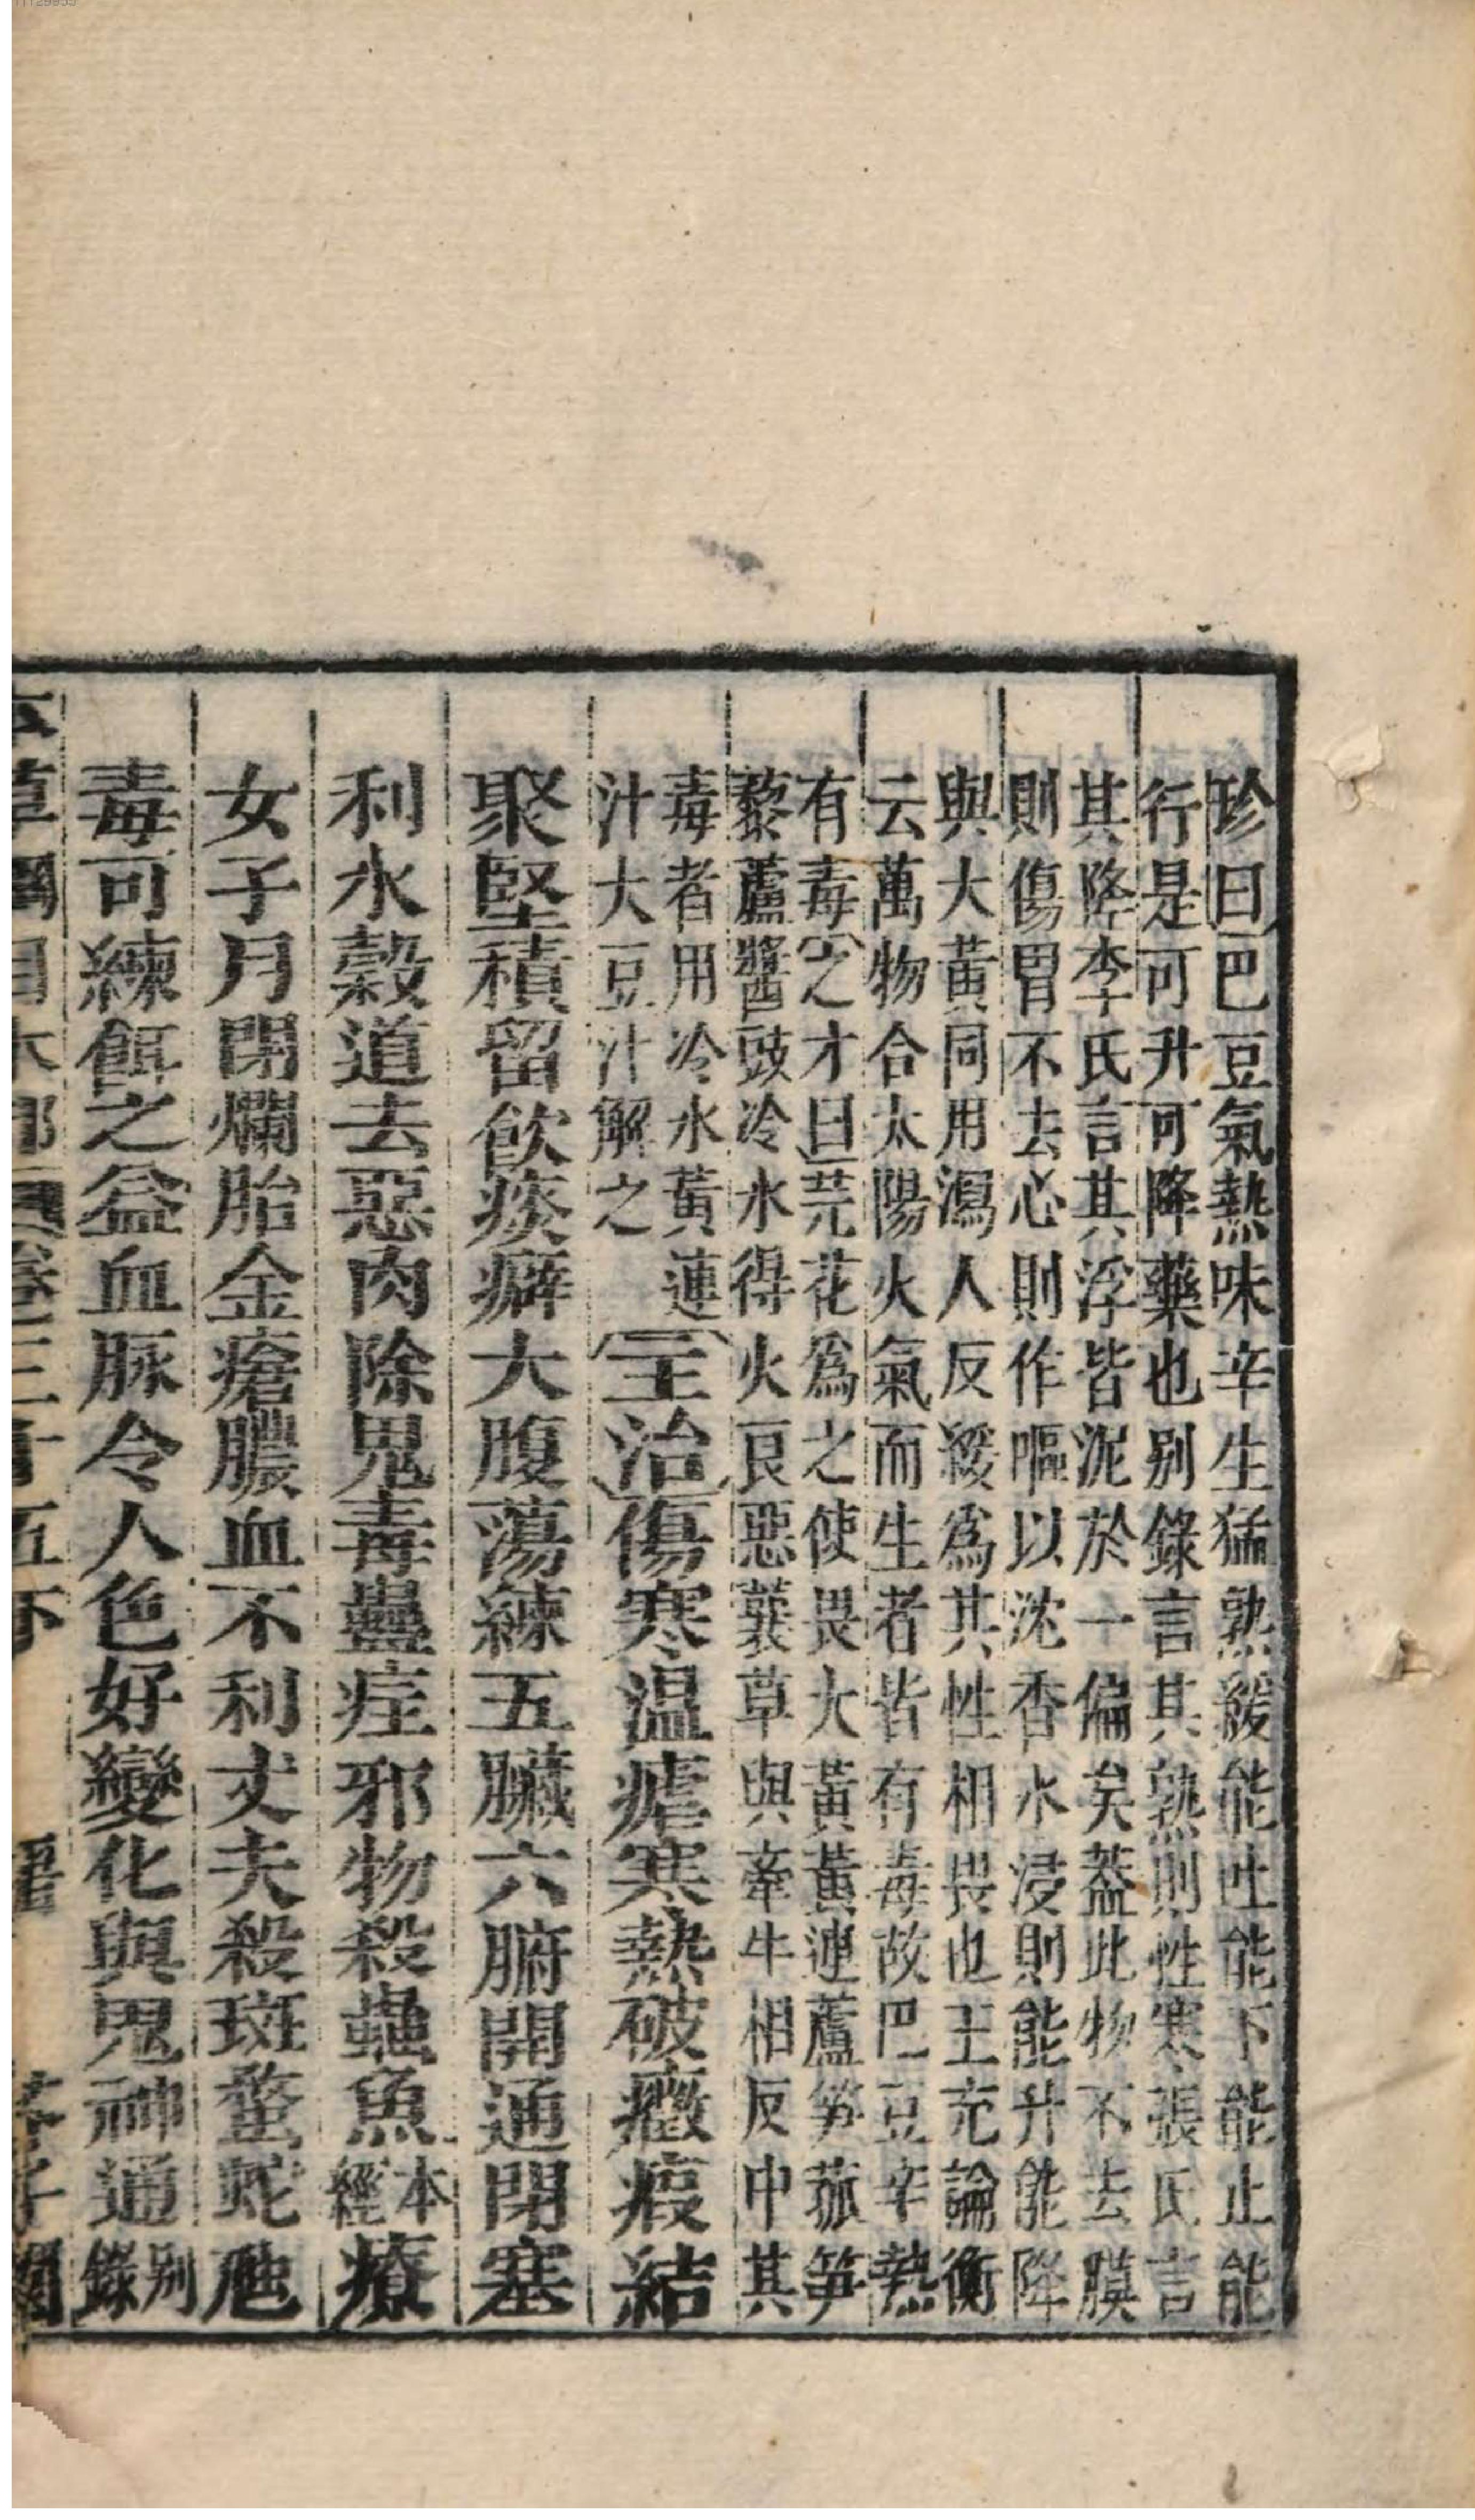 珍曰巴豆氣熱味辛生猛熟緩能吐能下能止能
行是可升可降藥也别錄言其熟則性寒張氏言
其降李氏言其浮皆泥於一偏矣蓋此物不去膜
則傷胃不去心則作嘔以沈香水浸則能升能降
與大黃同用瀉人反緩爲其性相畏也王充論衡
云萬物合太陽火氣而生者皆有毒故巴豆辛熱
有毒之才曰芫花爲之使畏大黃黃連蘆笋菰笋
藜蘆醬豉冷水得火良惡蘘草與牽牛相反中其
毒者用冷水黃連
汁大豆汁解之
主治傷寒溫瘧寒熱破癥瘕結
聚堅積留飮痰癖大腹蕩練五臟六腑開通閉塞
利水穀道去惡肉除鬼毒蠱疰邪物殺蟲魚本經療
女子月閉爛胎金瘡膿血不利丈夫殺斑蝥蛇虺
毒可練餌之益血脉令人色好變化與鬼神通别錄
草綱目木部卷三十五下